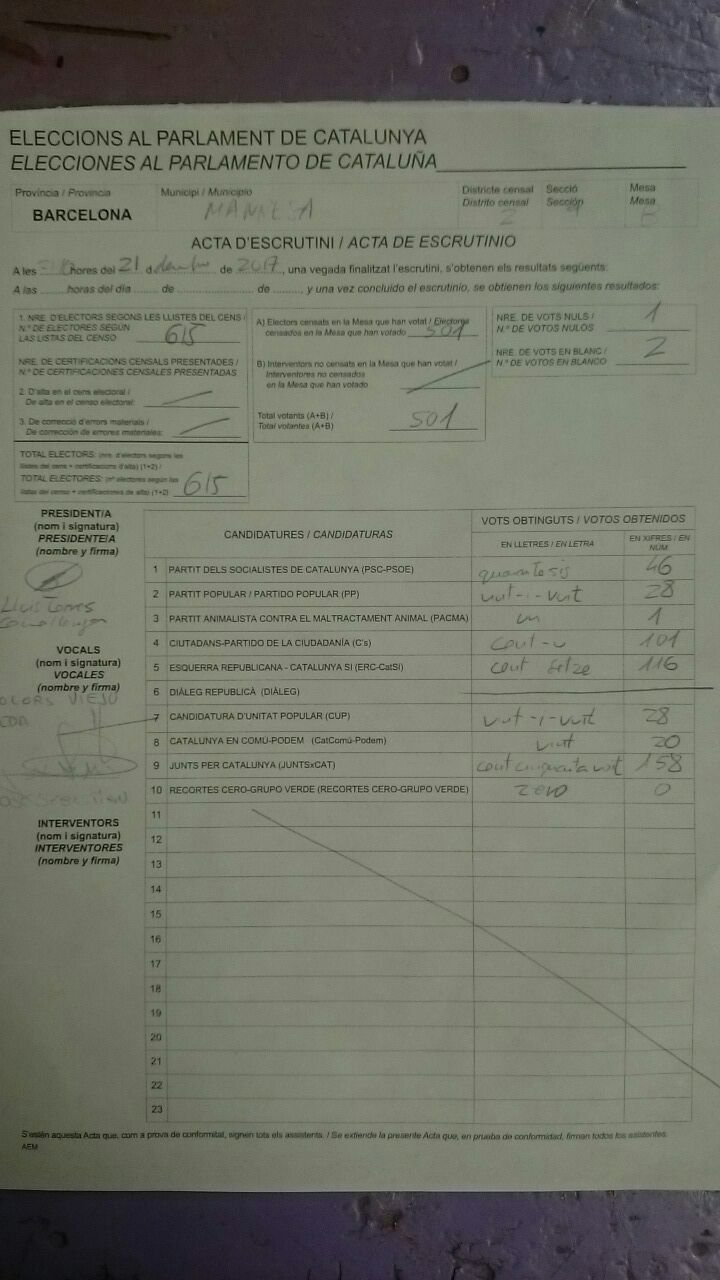 ELECCIONS AL PARLAMENT DE CATALUNYA
ELECCIONES AL PARLAMENTO DE CATALUÑA
Província / Provincia
BARCELONA
Municipi / Municipio
MANRESA
Districte censal
Distrito censal
2
Secció
Sección
Mesa
Mesa
ACTA D'ESCRUTINI / ACTA DE ESCRUTINIO
A les hores del 21 d de 2017, una vegada finalitzat l'escrutini, s'obtenen els resultats següents:
A las ........horas del día ..... de ........................ de ........., y una vez concluido el escrutinio, se obtienen los siguientes resultados:
1. NRE. D'ELECTORS SEGONS LES LLISTES DEL CENS /
N.º DE ELECTORES SEGÚN
LAS LISTAS DEL CENSO 615
NRE. DE CERTIFICACIONS CENSALS PRESENTADES /
N.º DE CERTIFICACIONES CENSALES PRESENTADAS
2. D'alta en el cens electoral /
De alta en el censo electoral:
3. De correcció d'errors materials /
De corrección de errores materiales:
TOTAL ELECTORS: (nre. d'electors segons les
llistes del cens + certificacions d'alta) (1+2) /
TOTAL ELECTORES: (nº electores según las
listas del censo + certificaciones de alta) (1+2) 615
A) Electors censats en la Mesa que han votat / Electores
censados en la Mesa que han votado 501
B) Interventors no censats en la Mesa que han votat /
Interventores no censados
en la Mesa que han votado
Total votants (A+B) /
Total votantes (A+B) 501
NRE. DE VOTS NULS /
N.º DE VOTOS NULOS 1
NRE. DE VOTS EN BLANC /
N.º DE VOTOS EN BLANCO 2
PRESIDENT/A
(nom i signatura)
PRESIDENTE/A
(nombre y firma)
Lluís Torres
VOCALS
(nom i signatura)
VOCALES
(nombre y firma)
INTERVENTORS
(nom i signatura)
INTERVENTORES
(nombre y firma)
CANDIDATURES / CANDIDATURAS
VOTS OBTINGUTS / VOTOS OBTENIDOS
EN LLETRES / EN LETRA
EN XIFRES / EN NÚM.
1 PARTIT DELS SOCIALISTES DE CATALUNYA (PSC-PSOE) quaranta sis 46
2 PARTIT POPULAR / PARTIDO POPULAR (PP) vint-i-vuit 28
3 PARTIT ANIMALISTA CONTRA EL MALTRACTAMENT ANIMAL (PACMA) un 1
4 CIUTADANS-PARTIDO DE LA CIUDADANÍA (C's) cent-u 101
5 ESQUERRA REPUBLICANA - CATALUNYA SÍ (ERC-CatSí) cent setze 116
6 DIÀLEG REPUBLICÀ (DIÀLEG)
7 CANDIDATURA D'UNITAT POPULAR (CUP) vint-i-vuit 28
8 CATALUNYA EN COMÚ-PODEM (CatComú-Podem) vint 20
9 JUNTS PER CATALUNYA (JUNTSxCAT) cent cinquanta vuit 158
10 RECORTES CERO-GRUPO VERDE (RECORTES CERO-GRUPO VERDE) zero 0
11
12
13
14
15
16
17
18
19
20
21
22
23
S'estén aquesta Acta que, com a prova de conformitat, signen tots els assistents. / Se extiende la presente Acta que, en prueba de conformidad, firman todos los asistentes.
AEM